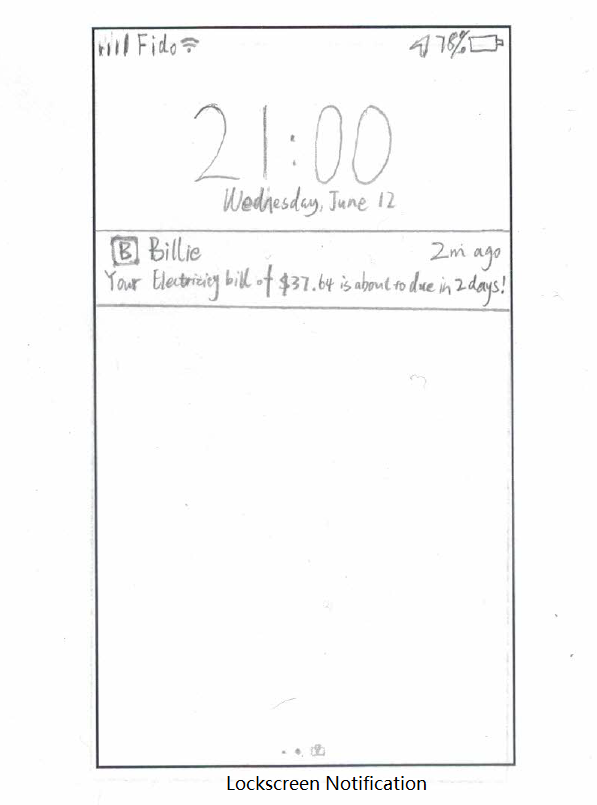 Fido 78%
21:00
Wednesday, June 12
B Billie 2m ago
Your Electricity bill of $37.64 is about to due in 2 days!
Lockscreen Notification